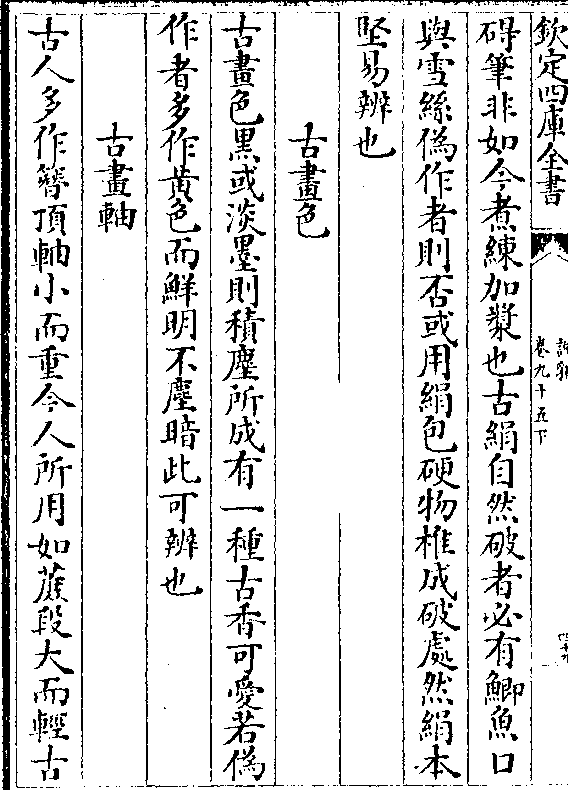 欽定四庫全書
卷九十五下
碍筆非如今煮練加漿也古絹自然破者必有鯽魚口
與雪絲偽作者則否或用絹包硬物椎成破處然絹本
堅易辨也
古畫色
古畫色黑或淡墨則積塵所成有一種古香可愛若偽
作者多作黄色而鮮明不塵暗此可辨也
古畫軸
古人多作簪頂軸小而重今人所用如蔗段大而輕古